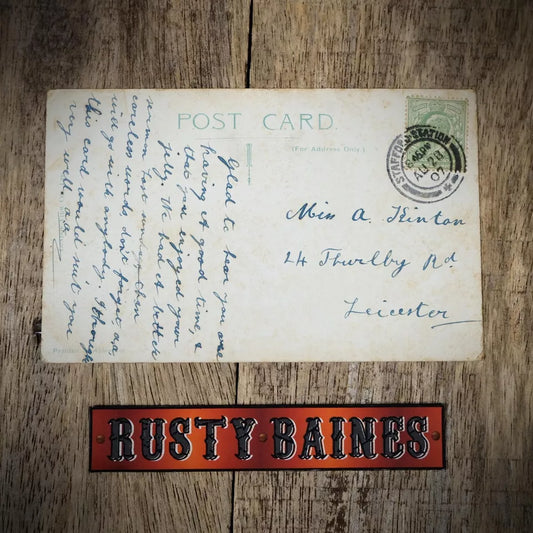 POST CARD.
(For Address Only.)
STAFFORD STATION
AU 28
07
Glad to hear you are
having a good time, &
that you enjoyed your
jelly. We had a better
sermon last Sunday than
careless words, don't forget as,
will go with anybody. I thought
this card would suit you
very well. a.a.
Miss A. Hinton
24 Thurlby Rd
Leicester
RUSTY BAINES